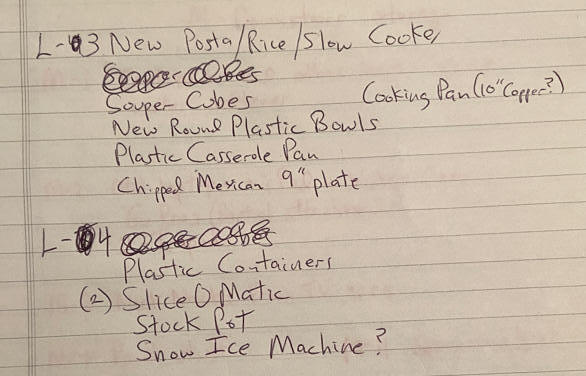 L-3 New Posta/Rice/Slow Cooker
Souper Cubes
Cooking Pan (10" Copper?)
New Round Plastic Bowls
Plastic Casserole Pan
Chipped Mexican 9" plate
L-04
Plastic Containers
(2) Slice O Matic
Stock Pot
Snow Ice Machine?